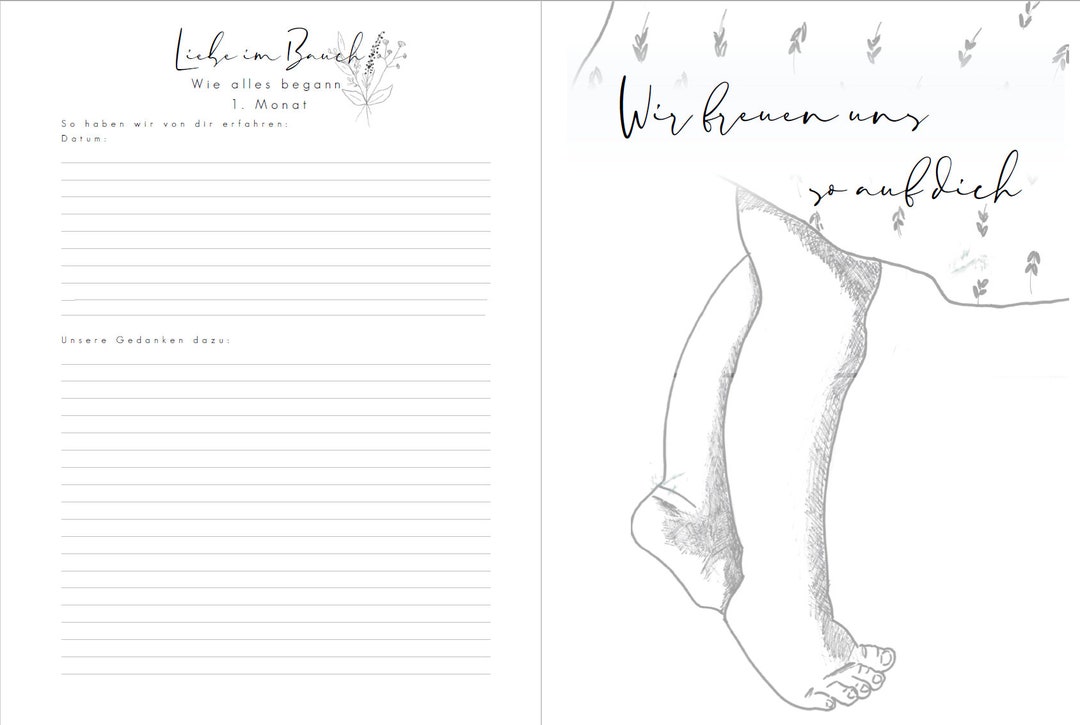 Liebe im Bauch
Wie alles begann
1. Monat
So haben wir von dir erfahren:
Datum:
Unsere Gedanken dazu:
Wir freuen uns
so auf dich